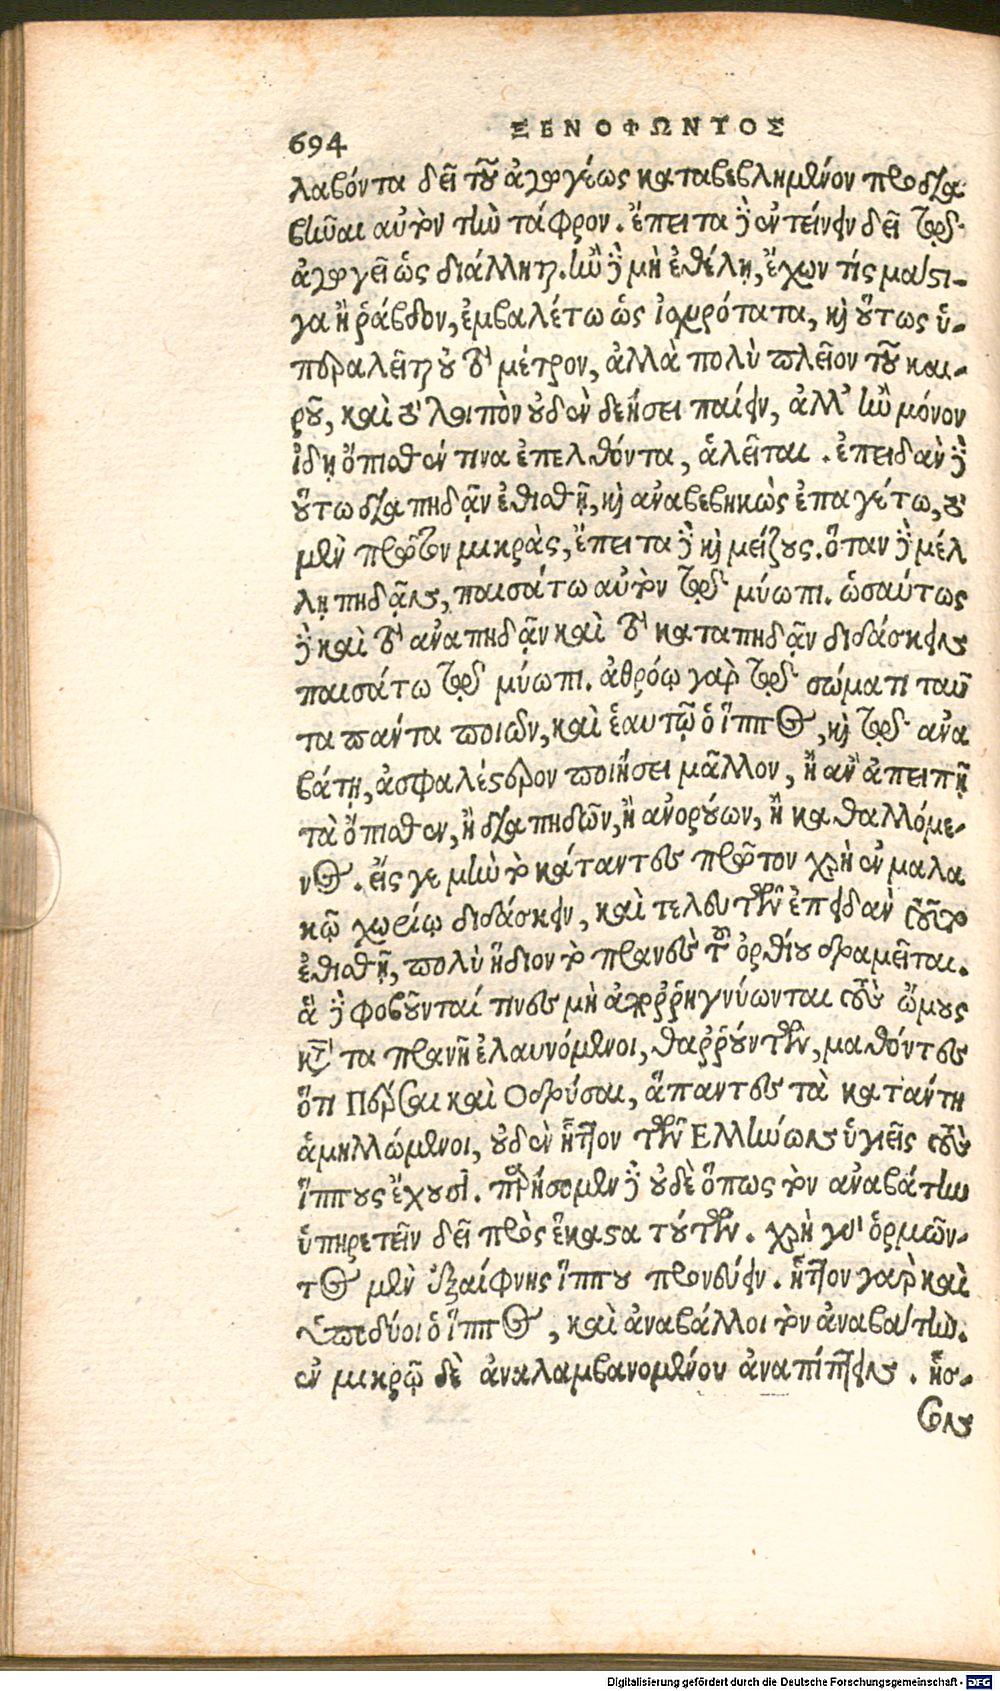 694 ΞΕΝΟΦΩΝΤΟΣ
λαβόντα δεῖ τοῦ ἀγωγέως καταβεβλημένον προδια-
βῆναι αὐτὸν τὴν τάφρον. ἔπειτα δὲ ἐντείνειν δεῖ τῷ
ἀγωγεῖ ὡς διάλληται. ἢν δὲ μὴ ἐθέλῃ, ἔχων τίς μάστι-
γα ἢ ῥάβδον, ἐμβαλέτω ὡς ἰσχυρότατα, καὶ οὕτως ὑ-
περαλεῖται οὐ τὸ μέτρον, ἀλλὰ πολὺ πλεῖον τοῦ και-
ροῦ, καὶ τὸ λοιπὸν οὐδὲν δεήσει παίειν, ἀλλ' ἢν μόνον
ἴδῃ ὄπισθέν τινα ἐπελθόντα, ἁλεῖται. ἐπειδὰν δὲ
οὕτω διαπηδᾷν ἐθισθῇ, καὶ ἀναβεβηκὼς ἐπαγέτω, τὸ
μὲν πρῶτον μικρὰς, ἔπειτα δὲ καὶ μείζους. ὅταν δὲ μέλ
λῃ πηδᾷν, παισάτω αὐτὸν τῷ μύωπι. ὡσαύτως
δὲ καὶ τὸ ἀναπηδᾷν καὶ τὸ καταπηδᾷν διδάσκων
παισάτω τῷ μύωπι. ἀθρόῳ γὰρ τῷ σώματι ταῦ
τα πάντα ποιῶν, καὶ ἑαυτῷ ὁ ἵππος, καὶ τῷ ἀνα
βάτῃ, ἀσφαλέστερον ποιήσει μᾶλλον, ἢ ἂν ἀπειπῇ
τὰ ὄπισθεν, ἢ διαπηδῶν, ἢ ἀνορούων, ἢ καθαλλόμε-
νος. εἴς γε μὴν τὸ κάταντες πρῶτον χρὴ ἐν μαλα
κῷ χωρίῳ διδάσκειν, καὶ τελευτῶν ἐπειδὰν τοῦτο
ἐθισθῇ, πολὺ ἥδιον τὸ πρανὲς τοῦ ὀρθίου δραμεῖται.
ἃ δὲ φοβοῦνταί τινες μὴ ἀποῤῥηγνύωνται τοὺς ὤμους
κατὰ τὰ πρανῆ ἐλαυνόμενοι, θαῤῥούντων, μαθόντες
ὅτι Πέρσαι καὶ Οδρύσαι, ἅπαντες τὰ κατάντη
ἁμιλλώμενοι, οὐδὲν ἧττον τῶν Ελλήνων ὑγιεῖς τοὺς
ἵππους ἔχουσι. παρήσομεν δὲ οὐδὲ ὅπως τὸν ἀναβάτην
ὑπηρετεῖν δεῖ πρὸς ἕκαστα τούτων. χρὴ γὰρ ὁρμῶν-
τος μὲν ἐξαίφνης ἵππου προνεύειν. ἧττον γὰρ καὶ
ὑποδύοι ὁ ἵππος, καὶ ἀναβάλλοι τὸν ἀναβάτην.
ἐν μικρῷ δὲ ἀναλαμβανομένου ἀναπίπτειν. ἧσ-
Digitalisierung gefördert durch die Deutsche Forschungsgemeinschaft - DFG